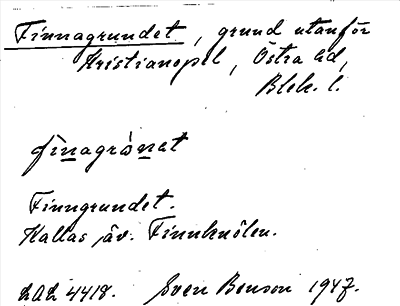 Finnagrundet, grund utanför
Kristianopel, Östra hd,
Blek. l.
finagrònat
Finngrundet.
Kallas äv. Finnknölen.
LAL 4418. Sven Benson 1947.